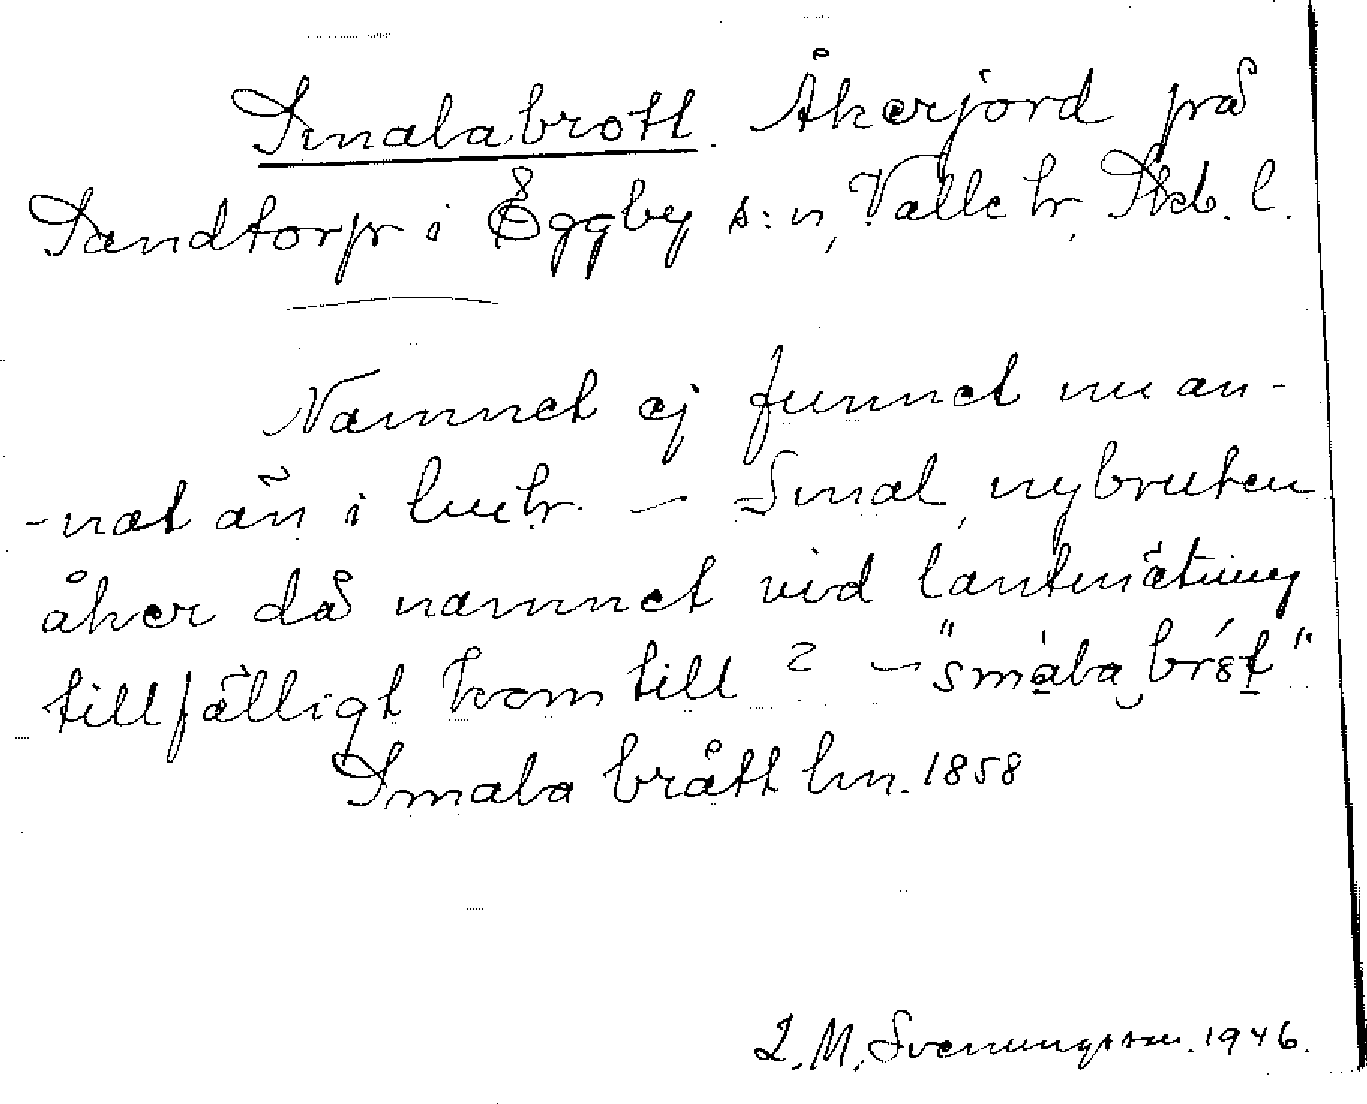 Smalabrott. Åkerjord på
Sandtorp i Eggby s:n, Valle hr, Skb. l.
Namnet ej funnet nu an-
-nat än i lmhr. – Smal, nybruten
åker då namnet vid lantmätning
tillfälligt kom till? – "smala brot"
Smala brått lm. 1858
L. M. Svenungsson. 1946.